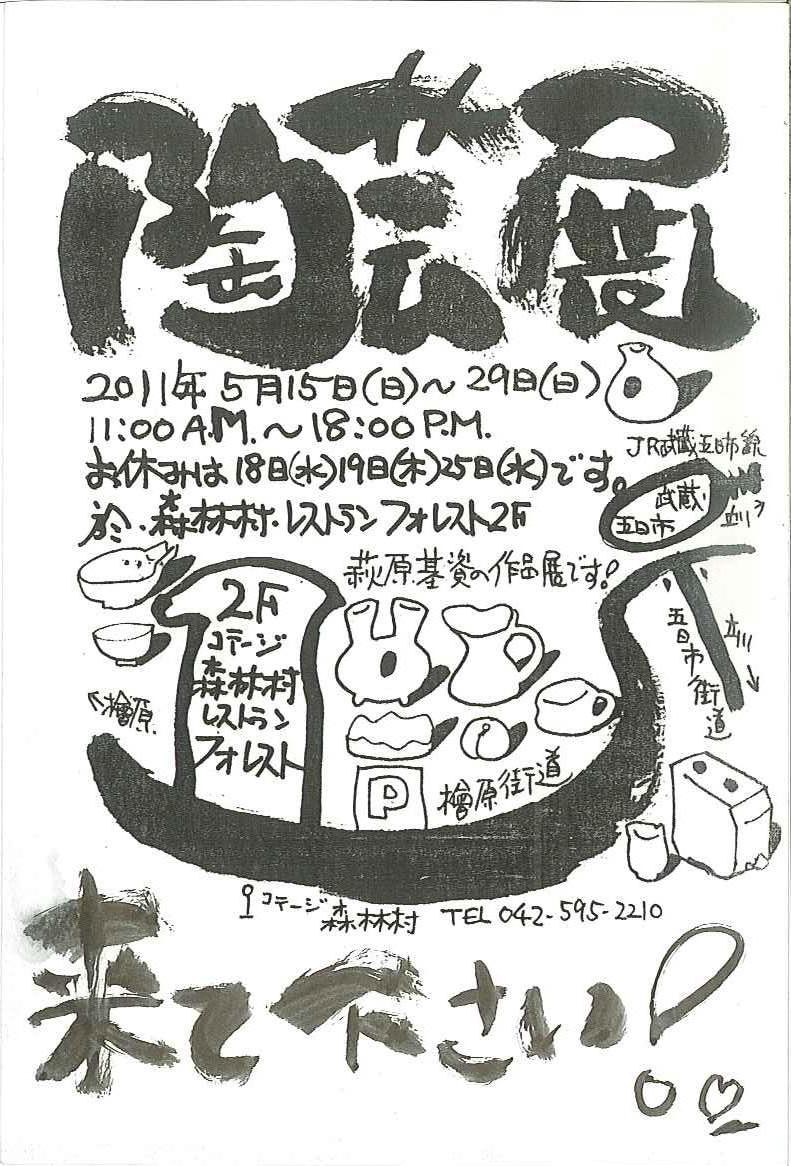 陶芸展
2011年5月15日(日)～29日(日)
11:00A.M.～18:00P.M.
お休みは18日(水)19日(木)25日(水)です。
於・森林村・レストランフォレスト2F
JR武蔵五日市線
武蔵
五日市
立川
萩原基資の作品展です!
2F
コテージ
森林村
レストラン
フォレスト
檜原
五日市街道
立川
P
檜原街道
コテージ森林村 TEL 042-595-2210
来て下さい!